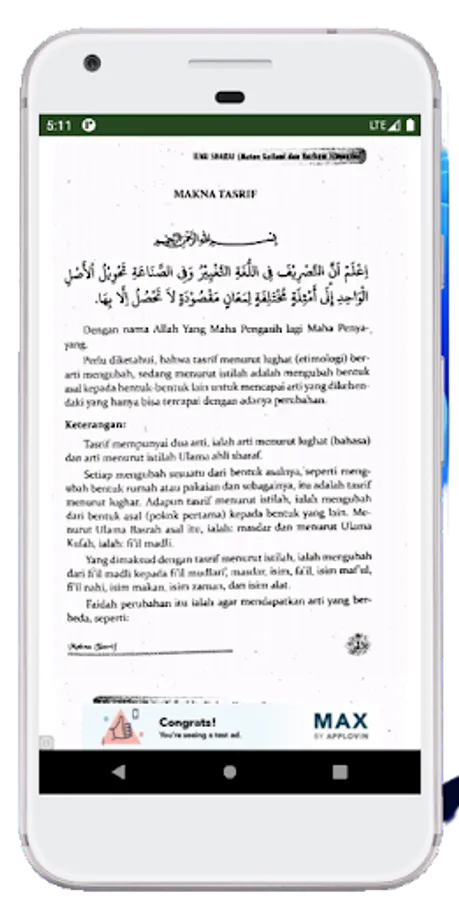 5:11
LTE
ILMU SHARAF (Matan Kailani dan Nazham
MAKNA TASRIF
بِسْمِ اللهِ الرَّحْمٰنِ الرَّحِيْمِ
اِعْلَمْ اَنَّ التَّصْرِيْفَ فِى اللُّغَةِ التَّغْيِيْرُ وَفِى الصِّنَاعَةِ تَحْوِيْلُ اْلأَصْلِ
الْوَاحِدِ إِلَى أَمْثِلَةٍ مُخْتَلِفَةٍ لِمَعَانٍ مَقْصُوْدَةٍ لاَ تَحْصُلُ إِلَّا بِهَا.
Dengan nama Allah Yang Maha Pengasih lagi Maha Penya-
yang.
Perlu diketahui, bahwa tasrif menurut lughat (etimologi) ber-
arti mengubah, sedang menurut istilah adalah mengubah bentuk
asal kepada bentuk-bentuk lain untuk mencapai arti yang dikehen-
daki yang hanya bisa tercapai dengan adanya perubahan.
Keterangan:
Tasrif mempunyai dua arti, ialah arti menurut lughat (bahasa)
dan arti menurut istilah Ulama ahli sharaf.
Setiap mengubah sesuatu dari bentuk asalnya, seperti meng-
ubah bentuk rumah atau pakaian dan sebagainya, itu adalah tasrif
menurut lughat. Adapun tasrif menurut istilah, ialah mengubah
dari bentuk asal (pokok pertama) kepada bentuk yang lain. Me-
nurut Ulama Basrah asal itu, ialah: masdar dan menurut Ulama
Kufah, ialah: fi'il madli.
Yang dimaksud dengan tasrif menurut istilah, ialah mengubah
dari fi'il madli kepada fi'il mudlari', masdar, isim, fa'il, isim maf'ul,
fi'il nahi, isim makan, isim zaman, dan isim alat.
Faidah perubahan itu ialah agar mendapatkan arti yang ber-
beda, seperti:
Congrats!
You're seeing a test ad.
MAX
BY APPLOVIN